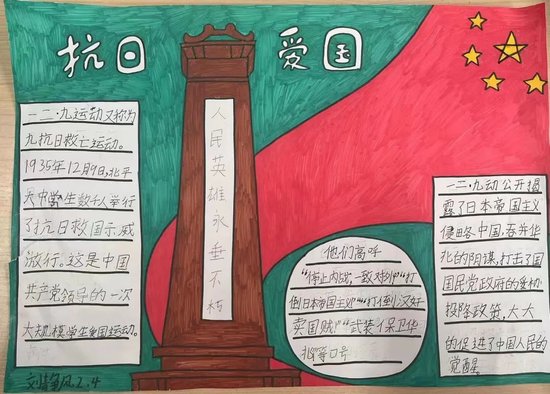 抗日 爱国
一二·九运动又称为
九抗日救亡运动。
1935年12月9日,北平
大中学生数千人举行
了抗日救国示威
游行。这是中国
共产党领导的一次
大规模学生爱国运动。
人民英雄永垂不朽
他们高呼
"停止内战,一致对外""打
倒日本帝国主义""打倒汉奸
卖国贼""武装保卫华
北"等口号
一二·九动公开揭
露了日本帝国主义
侵略中国,吞并华
北的阴谋,打击了国
国民党政府的妥协
投降政策,大大
的促进了中国人民的
觉醒。
2.4